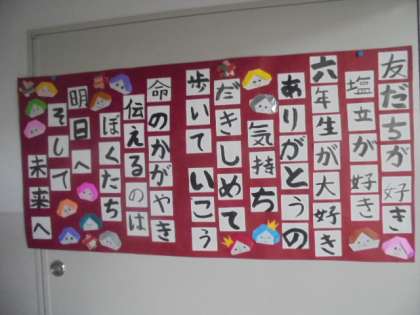 友だちが好き
塩立が好き
六年生が大好き
ありがとうの
気持ち
だきしめて
歩いていこう
命のかがやき
伝えるのは
ぼくたち
明日へ
そして
未来へ